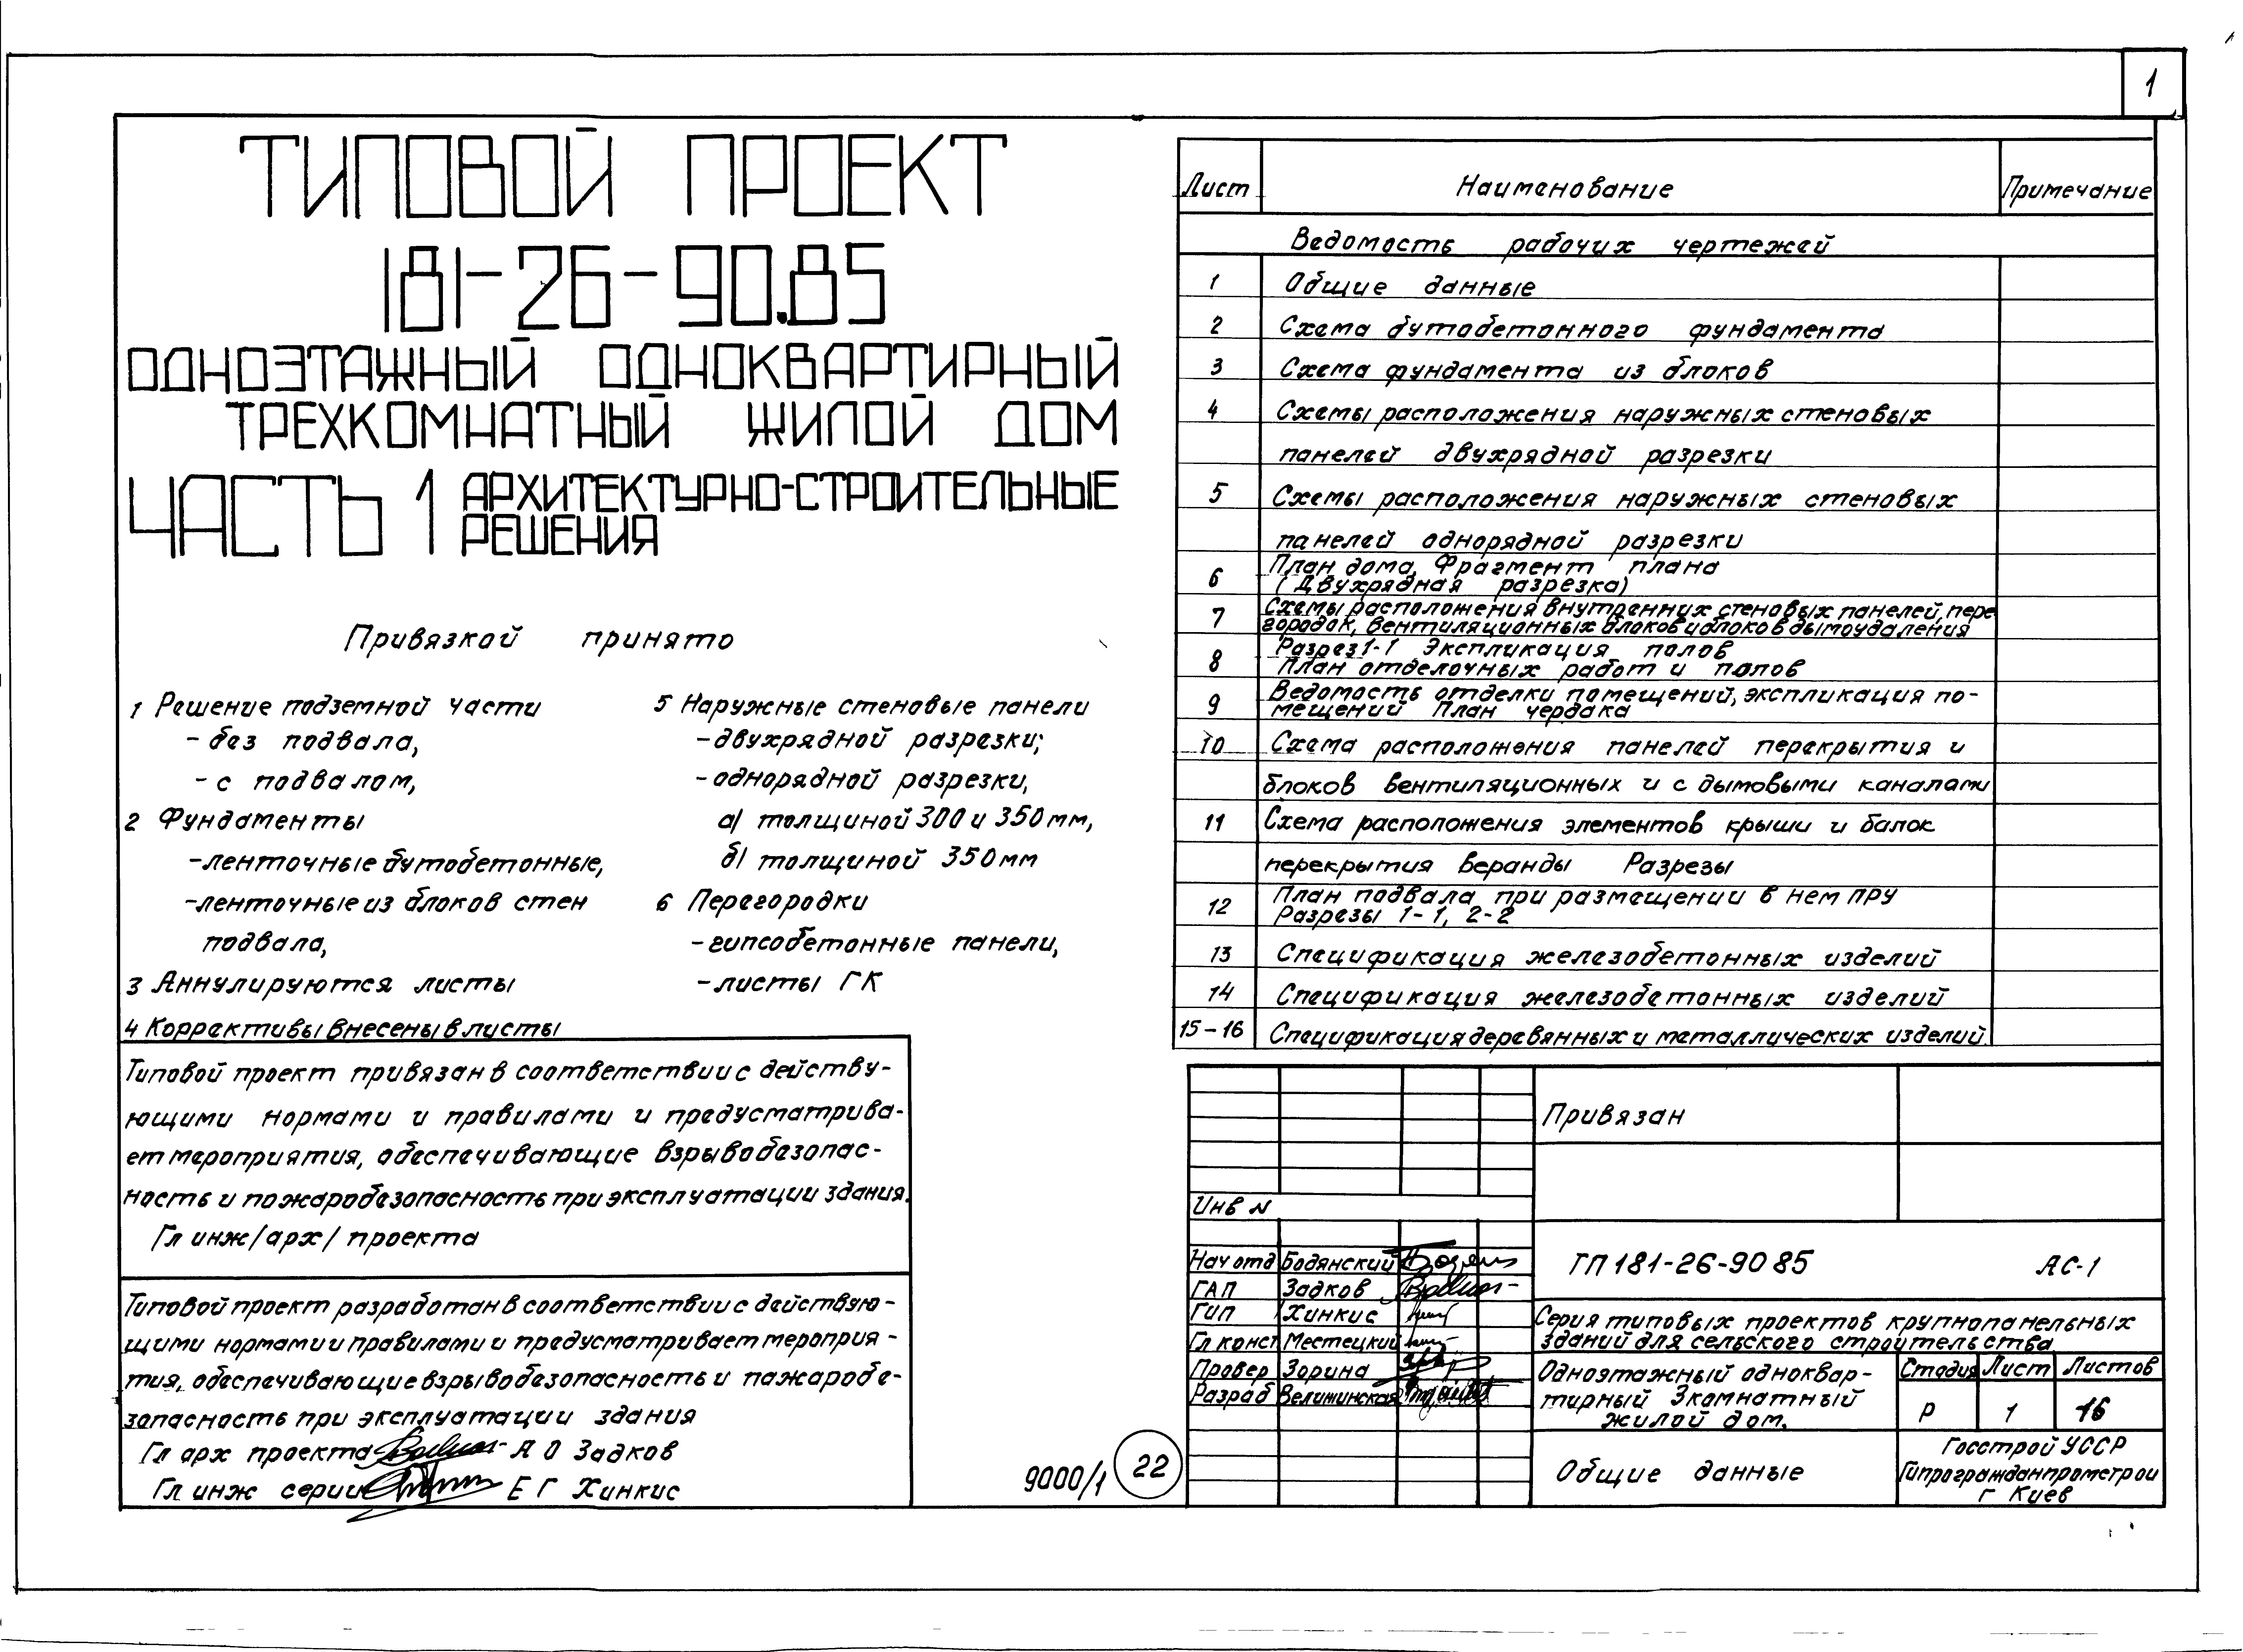 1
ТИПОВОЙ ПРОЕКТ
181-26-90.85
ОДНОЭТАЖНЫЙ ОДНОКВАРТИРНЫЙ
ТРЕХКОМНАТНЫЙ ЖИЛОЙ ДОМ
ЧАСТЬ 1 АРХИТЕКТУРНО-СТРОИТЕЛЬНЫЕ
РЕШЕНИЯ
Привязкой принято
1 Решение подземной части
- без подвала,
- с подвалом,
2 Фундаменты
- ленточные бутобетонные,
- ленточные из блоков стен
подвала,
3 Аннулируются листы
4 Коррективы внесены в листы
5 Наружные стеновые панели
- двухрядной разрезки;
- однорядной разрезки,
а) толщиной 300 и 350 мм,
б) толщиной 350 мм
6 Перегородки
- гипсобетонные панели,
- листы ГК
Типовой проект привязан в соответствии с действу-
ющими нормами и правилами и предусматрива-
ет мероприятия, обеспечивающие взрывобезопас-
ность и пожаробезопасность при эксплуатации здания.
Гл инж/арх/ проекта
Типовой проект разработан в соответствии с действую-
щими нормами и правилами и предусматривает мероприя-
тия, обеспечивающие взрывобезопасность и пажаробе-
зопасность при эксплуатации здания
Гл арх проекта А О Задков
Гл инж серии Е Г Хинкис
9000/1 22
Лист Наименование Примечание
Ведомость рабочих чертежей
1 Общие данные
2 Схема бутобетонного фундамента
3 Схема фундамента из блоков
4 Схемы расположения наружных стеновых
панелей двухрядной разрезки
5 Схемы расположения наружных стеновых
панелей однорядной разрезки
6 План дома, Фрагмент плана
(Двухрядная разрезка)
7 Схемы расположения внутренних стеновых панелей, пере
городок, вентиляционных блоков и блоков дымоудаления
8 Разрез 1-1 Экспликация полов
План отделочных работ и полов
9 Ведомость отделки помещений, экспликация по-
мещений План чердака
10 Схема расположения панелей перекрытия и
блоков вентиляционных и с дымовыми каналами
11 Схема расположения элементов крыши и балок
перекрытия веранды Разрезы
12 План подвала при размещении в нем ПРУ
Разрезы 1-1, 2-2
13 Спецификация железобетонных изделий
14 Спецификация железобетонных изделий
15-16 Спецификация деревянных и металлических изделий
Привязан
Инв N
Нач отд Бодянский
ГАП Задков
ГИП Хинкис
Гл конст Местецкий
Провер Зорина
Разраб Велижинская
ТП 181-26-90 85 АС-1
Серия типовых проектов крупнопанельных
зданий для сельского строительства
Одноэтажный одноквар-
тирный 3комнатный
жилой дом.
Стадия Лист Листов
Р 1 16
Общие данные
Госстрой УССР
Гипрогражданпромстрой
г Киев